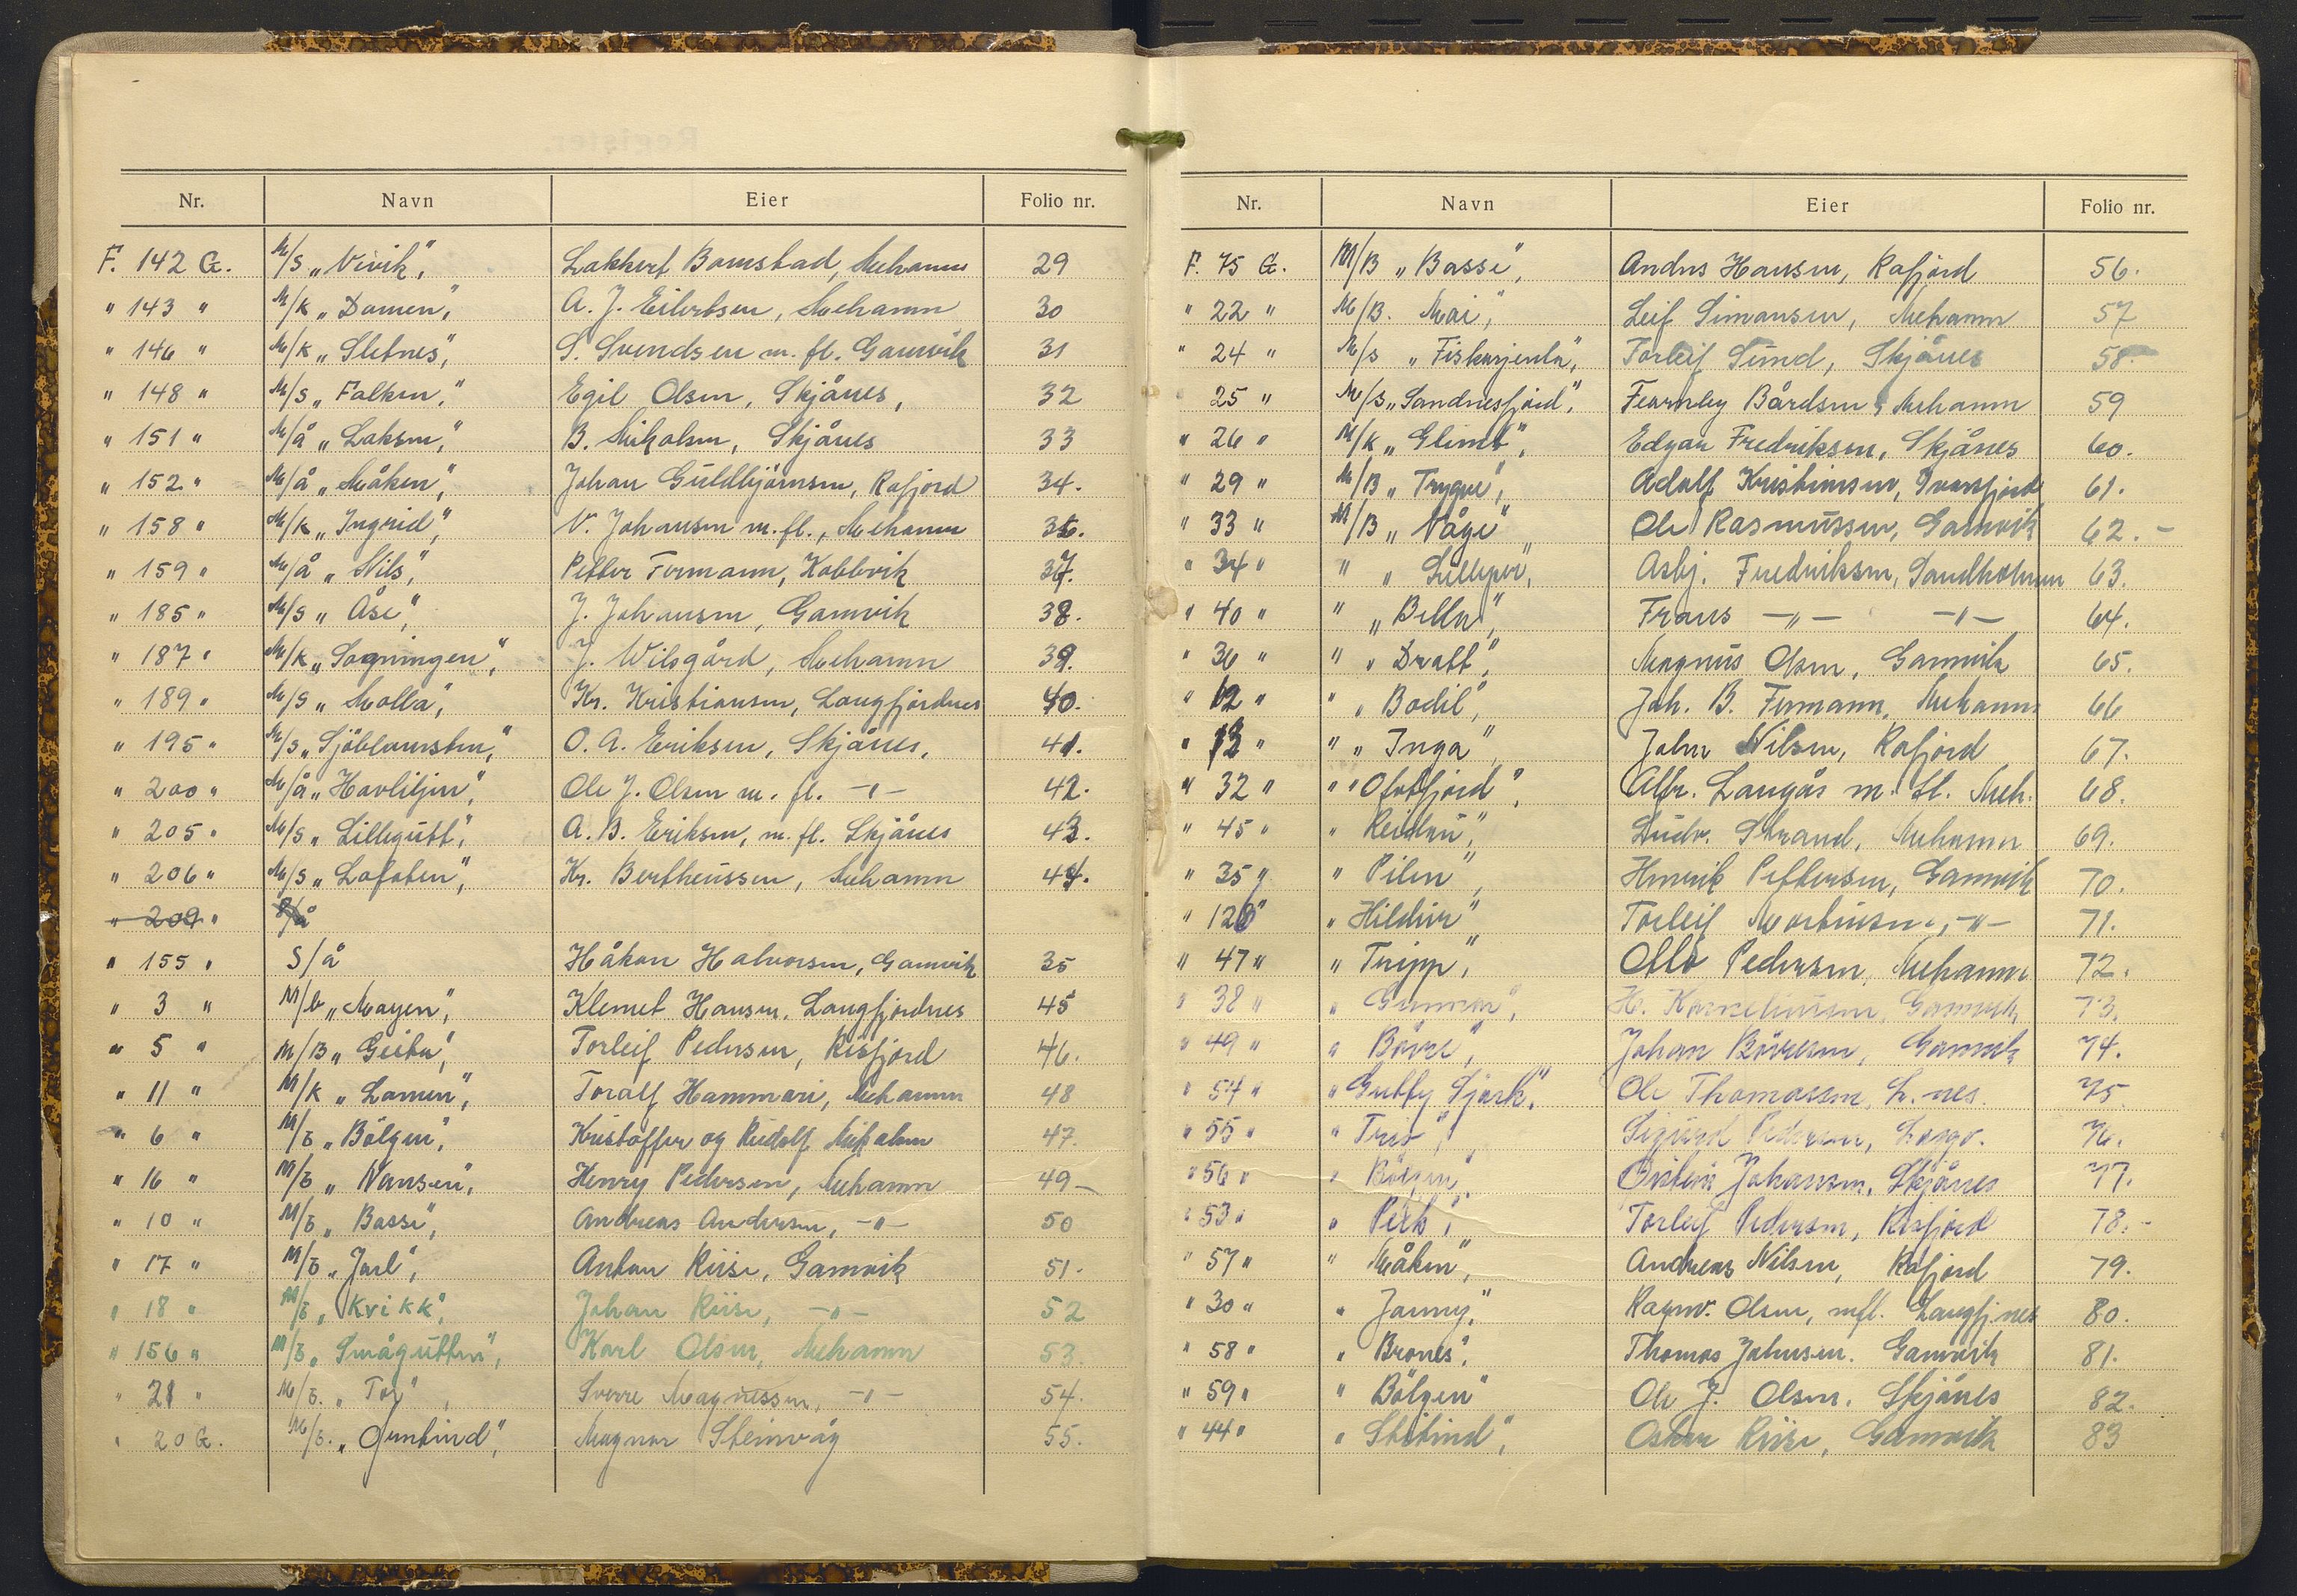 Nr. Navn Eier Folio nr.
F. 142 G. M/s „Vivik“, Lakhert Bomstad, Mehamn 29
" 143 " M/k „Domen“, A. J. Eilertsen, Mehamn 30
" 146 " M/k „Sletnes“, S. Svendsen m. fl. Gamvik 31
" 148 " M/s „Falken“, Egil Olsen, Skjånes, 32
" 151 " M/å „Laksen“, B. Mikalsen, Skjånes 33
" 152 " M/å „Måken“, Johan Guldbjörnsen, Kofjord 34.
" 158 " M/k „Ingrid“, V. Johansen m. fl., Mehamn 36.
" 159 " M/å „Nils“, Petter Fermann, Kobbvik 37.
" 185 " M/s „Åse“, J. Johansen, Gamvik 38.
" 187 " M/k „Sogningen“, J. Wilsgård, Mehamn 39.
" 189 " M/s „Molla“, Kr. Kristiansen, Langfjordnes 40.
" 195 " M/s „Sjöblomsten“, O. A. Eriksen, Skjånes, 41.
" 200 " M/å „Havliljen“, Ole J. Olsen m. fl. -"- 42.
" 205 " M/s „Lillegutt“, A. B. Eriksen, m. fl. Skjånes 43.
" 206 " M/s „Lofoten“, Kr. Bertheussen, Mehamn 44.
" 209 " S/å
" 155 " S/å Håkon Halvorsen, Gamvik 35
" 3 " M/b „Mayen“, Klemet Hansen, Langfjordnes 45
" 5 " M/B „Geita“, Torleif Pedersen, Risfjord 46.
" 11 " M/K „Lomen“, Toralf Hammari, Mehamn 48
" 6 " M/b „Bölgen“, Kristoffer og Rudolf Mikalsen 47.
" 16 " M/b „Nansen“, Henry Pedersen, Mehamn 49 –
" 10 " M/b „Basse“, Andreas Andersen, -"- 50
" 17 " M/b „Jarl“, Anton Riise, Gamvik 51.
" 18 " M/b „Kvikk“, Johan Riise, -"- 52
" 156 " M/b „Smågutten“, Karl Olsen, Mehamn 53.
" 21 " M/b. „Tor“, Sverre Magnussen, -"- 54.
" 20 G. M/b. „Omtind“, Magnar Steinvåg 55.
Nr. Navn Eier Folio nr.
F. 75 G. M/B „Basse“, Andrs Hansen, Kofjord 56.
" 22 " M/B. Mai“, Leif Simonsen, Mehamn 57
" 24 " M/s „Fiskerjenta“, Torleif Sund, Skjånes 58.
" 25 " M/s „Sandnesfjord“, Fearnley Bårdsen, Mehamn 59
" 26 " M/k „Glimt“, Edgar Fredriksen, Skjånes 60.
" 29 " M/B „Trygve“, Adolf Kristensen, Ivarsfjord 61.
" 33 " M/B „Våge“ Ole Rasmussen, Gamvik 62. –
" 34 " " „Lilleper“, Asbj. Fredriksen, Sandholmen 63.
" 40 " " „Bella“, Frans -"- -"- 64.
" 36 " " „Dratt“, Magnus Olsen, Gamvik 65.
" 12 " " „Bodil“, Joh. B. Fermann, Mehamn 66
" 13 " " „Inga“, John Nilsen, Kofjord 67.
" 32 " " „Oftofjord“, Albr. Langås m. fl. Meh. 68.
" 45 " " Reidun“, Ludv. Strand, Mehamn 69.
" 35 " " Pilen“, Henrik Pettersen, Gamvik 70.
" 128 " „Hildur“ Torleif Mortensen, -"- 71.
" 47 " " Tripp“, Otto Pedersen, Mehamn 72.
" 38 " " Gunnar“, H. Korneliussen, Gamvik 73.
" 49 " " Börre“, Johan Börresen, Gamvik 74.
" 54 " " Gutty Sjark“, Ole Thomassen, L. nes. 75.
" 55 " " Tres“, Sigurd Pedersen, 76.
" 56 " " Bölgen“ Östein Johansen, Skjånes 77.
" 53 " " Perk“, Torleif Pedersen, Risfjord 78. –
" 57 " " Måken“, Andreas Nilsen, Kofjord 79.
" 30 " " Jonny“, Ragnv. Olsen, mfl. Langfj.nes 80.
" 58 " " Brones“, Thomas Johnsen. Gamvik 81.
" 59 " " Bölgen“ Ole J. Olsen. Skjånes 82.
" 44 " " Stetind“, Oskar Riise, Gamvik 83